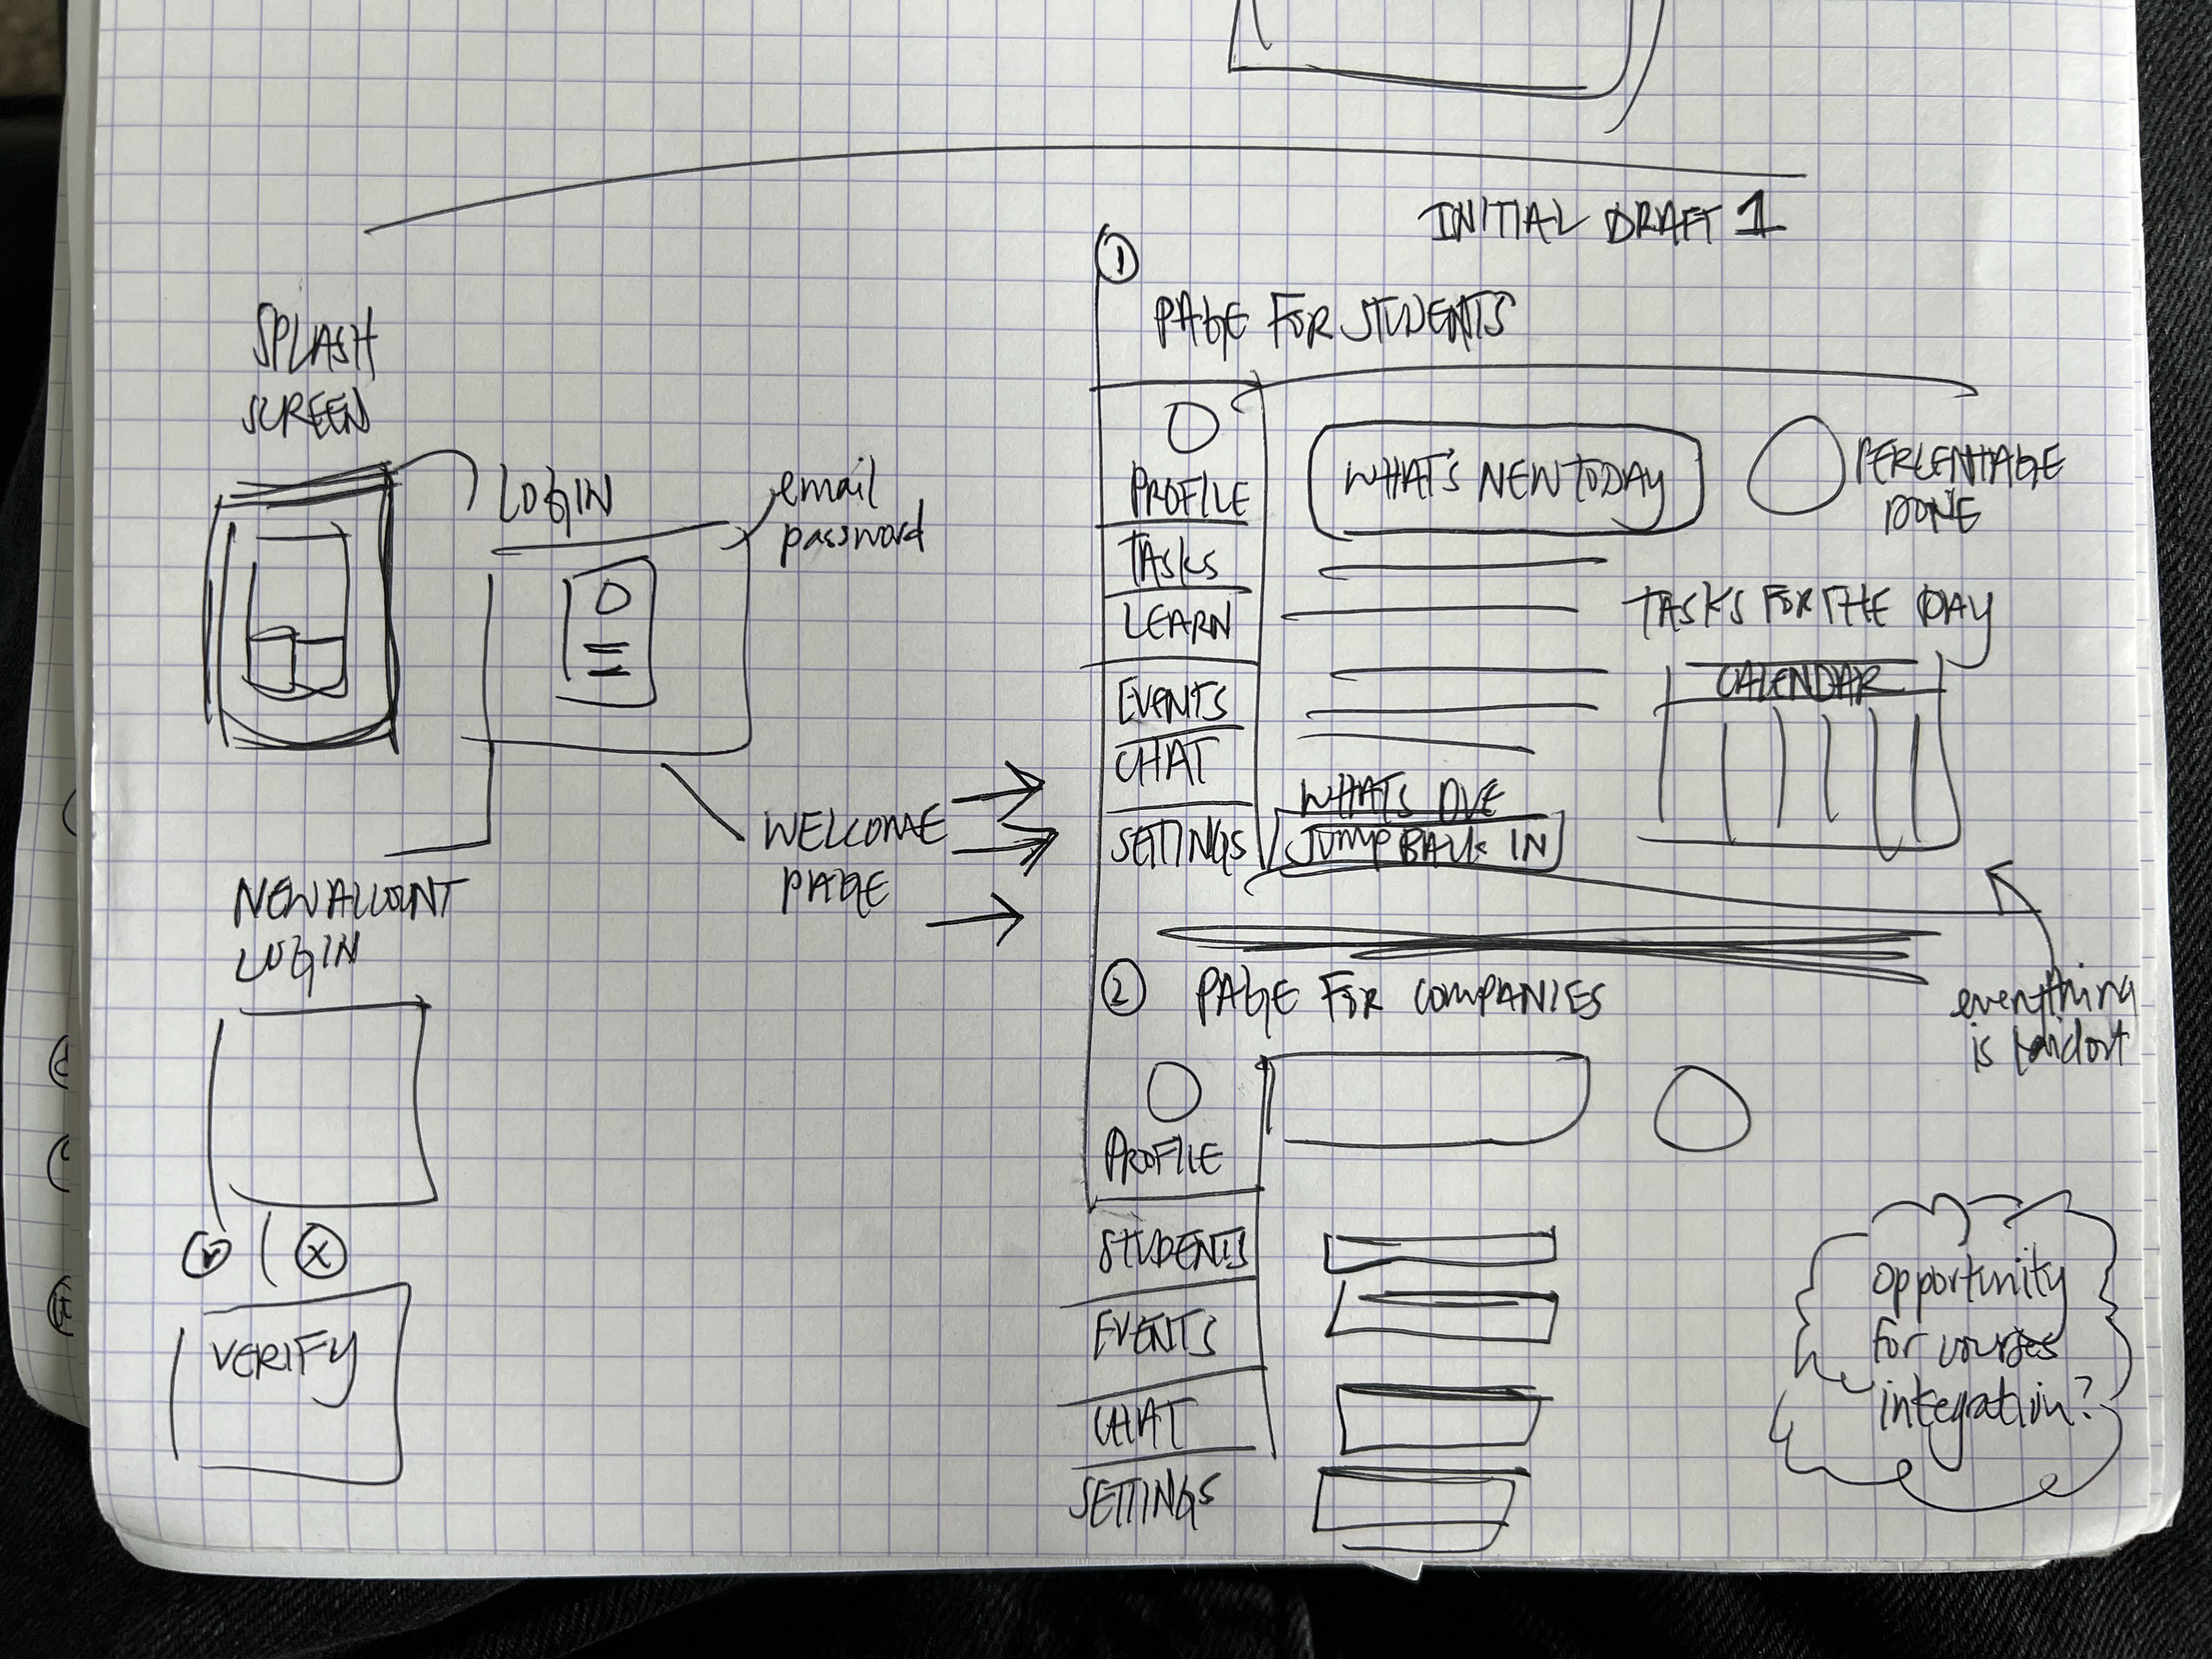 INITIAL DRAFT 1
SPLASH
SCREEN
LOGIN
email
password
WELCOME
PAGE
NEW ACCOUNT
LOGIN
VERIFY
1
PAGE FOR STUDENTS
PROFILE
TASKS
LEARN
EVENTS
CHAT
SETTINGS
WHAT'S NEW TODAY
PERCENTAGE
DONE
TASKS FOR THE DAY
CALENDAR
WHATS DUE
JUMP BACK IN
everything
is laid out
2 PAGE FOR COMPANIES
PROFILE
STUDENTS
EVENTS
CHAT
SETTINGS
opportunity
for courses
integration?